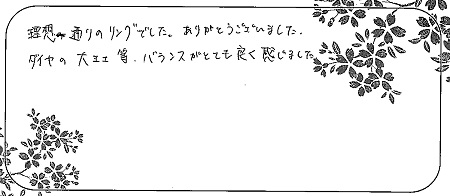 理想通りのリングでした。ありがとうございました.
ダイヤの大王工等.バランスがとても良く感じました